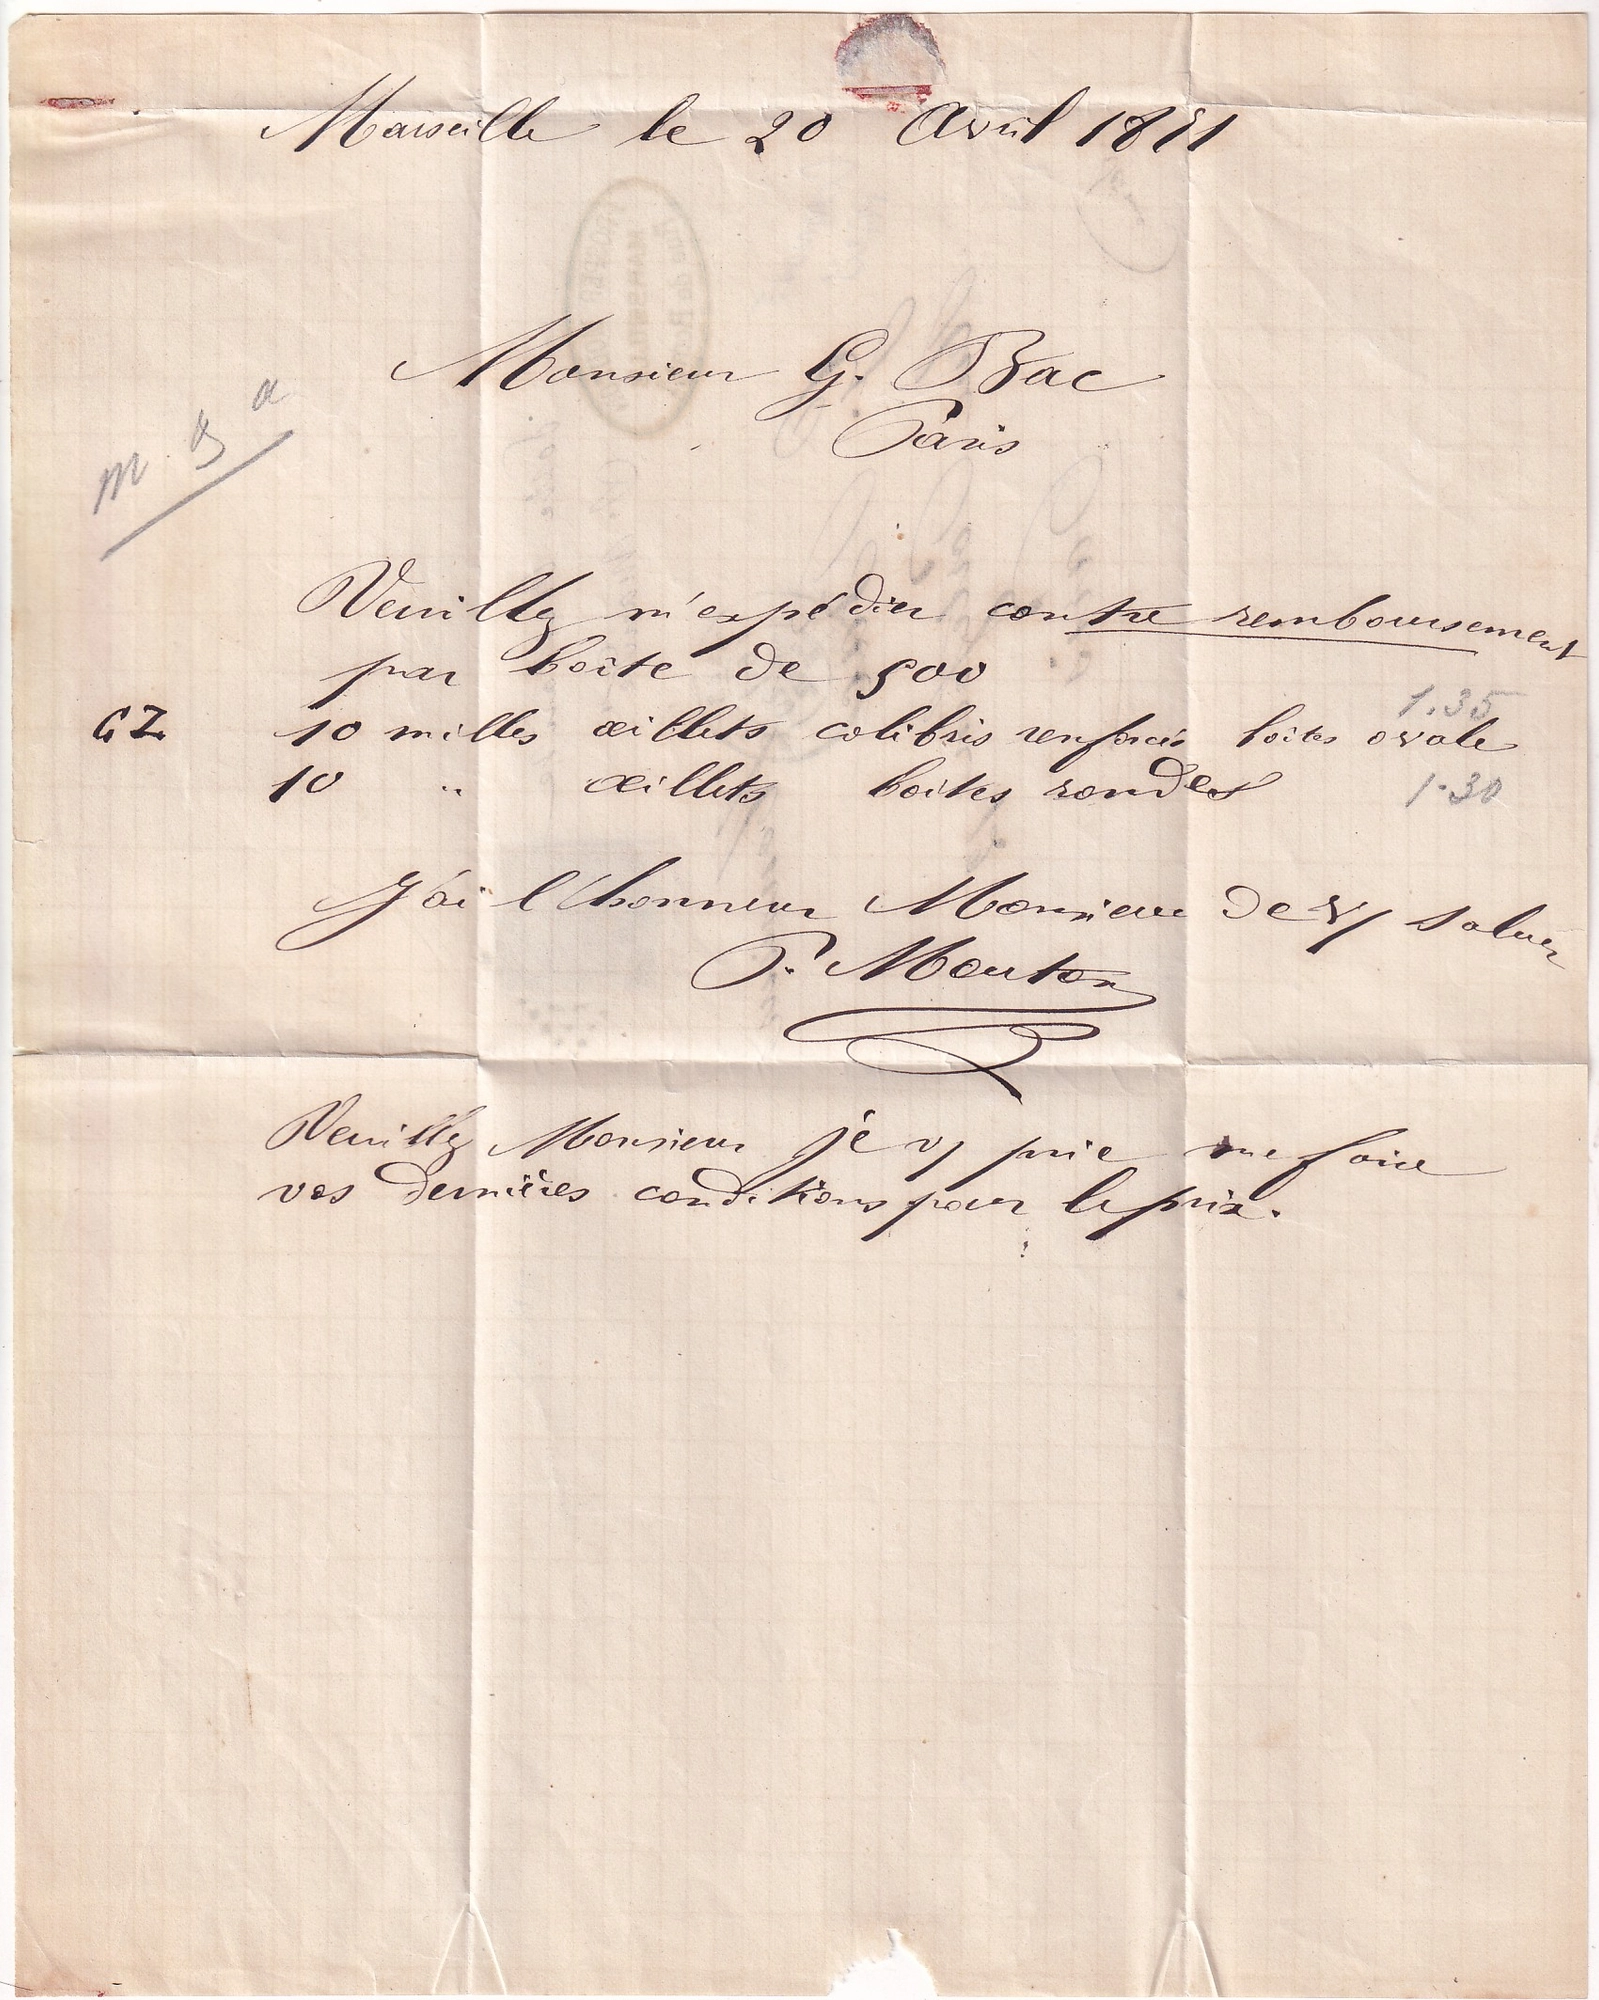 Marseille le 20 Avril 1871
Monsieur G. Bac
Paris
m. B a
Veuillez m'expédier contre remboursement
par boîte de 500
1.35
GZ. 10 milles œillets colibris renforcés boîtes ovale
10 " œillets boîtes rondes 1.30
J'ai l'honneur Monsieur de vs saluer
P. Mouton
Veuillez Monsieur je vs prie me faire
vos dernières conditions pour le prix.